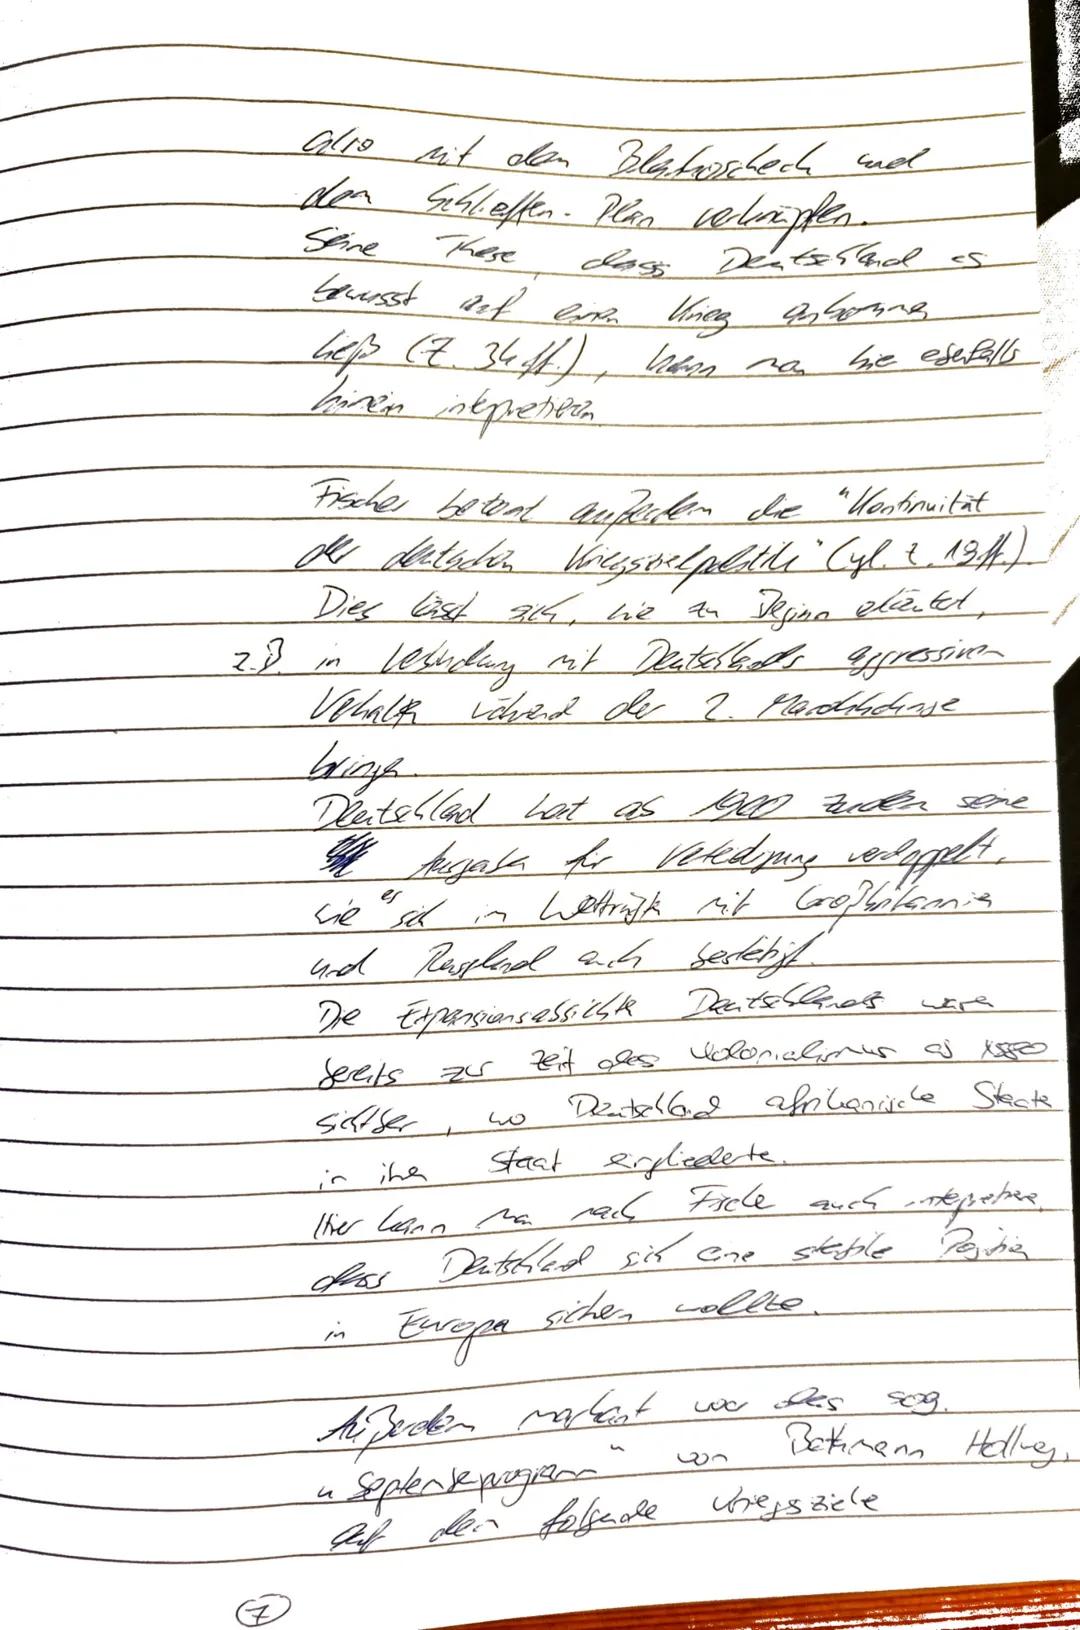 also mit dem Blankoscheck und
dem Schlieffen-Plan verknüpfen.
Seine These, dass Deutschland es
bewusst auf einen Krieg ankommen
ließ (Z. 34 ff.), kann man hie ebenfalls
hinein intepretieren.
Fischer betont außerdem die "Kontinuität
der deutschen Kriegszielpolitik" (vgl. Z. 19 ff.).
Dies lässt sich, wie zu Beginn eläutet,
z.B. in Verbindung mit Deutschlands aggressiven
Vehalten während der 2. Marokkokrise
bringen.
Deutschland hat ab 1900 zudem seine
Ausgaben für Veteidigung verdoppelt,
wie es sich im Wettrüsten mit Großbritannien
und Russland auch bestätigt.
Die Expansionsabsichten Deutschlands waren
bereits zur Zeit des Kolonialismus ab 1880
sichtbar, wo Deutschland afrikanische Staaten
in ihen Staat eingliederte.
Hier kann man nach Fische auch intepretieren,
dass Deutschland sich eine stabile Position
in Europa sichern wollte.
Außerdem markant war das sog.
"Septembeprogramm" von Bethmann Hollweg,
auf dem folgende Kriegsziele
7